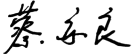 蔡永良